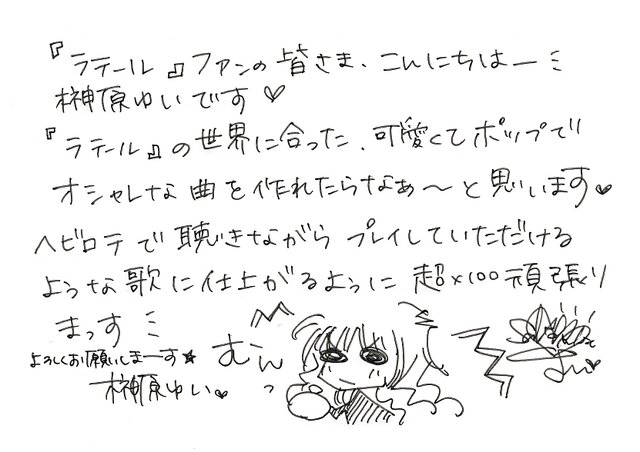 『ラテール』ファンの皆さま、こんにちはーミ
榊原ゆいです♡
『ラテール』の世界に合った、可愛くてポップで
オシャレな曲を作れたらなぁ～と思います♥
ヘビロテで聴きながらプレイしていただける
ような歌に仕上がるように超×100頑張り
まっすミ
よろしくお願いしまーす★
榊原ゆい♥
むんっ